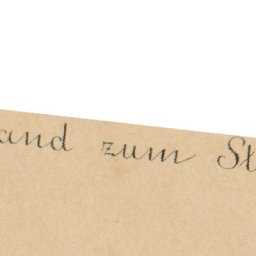 and zum St